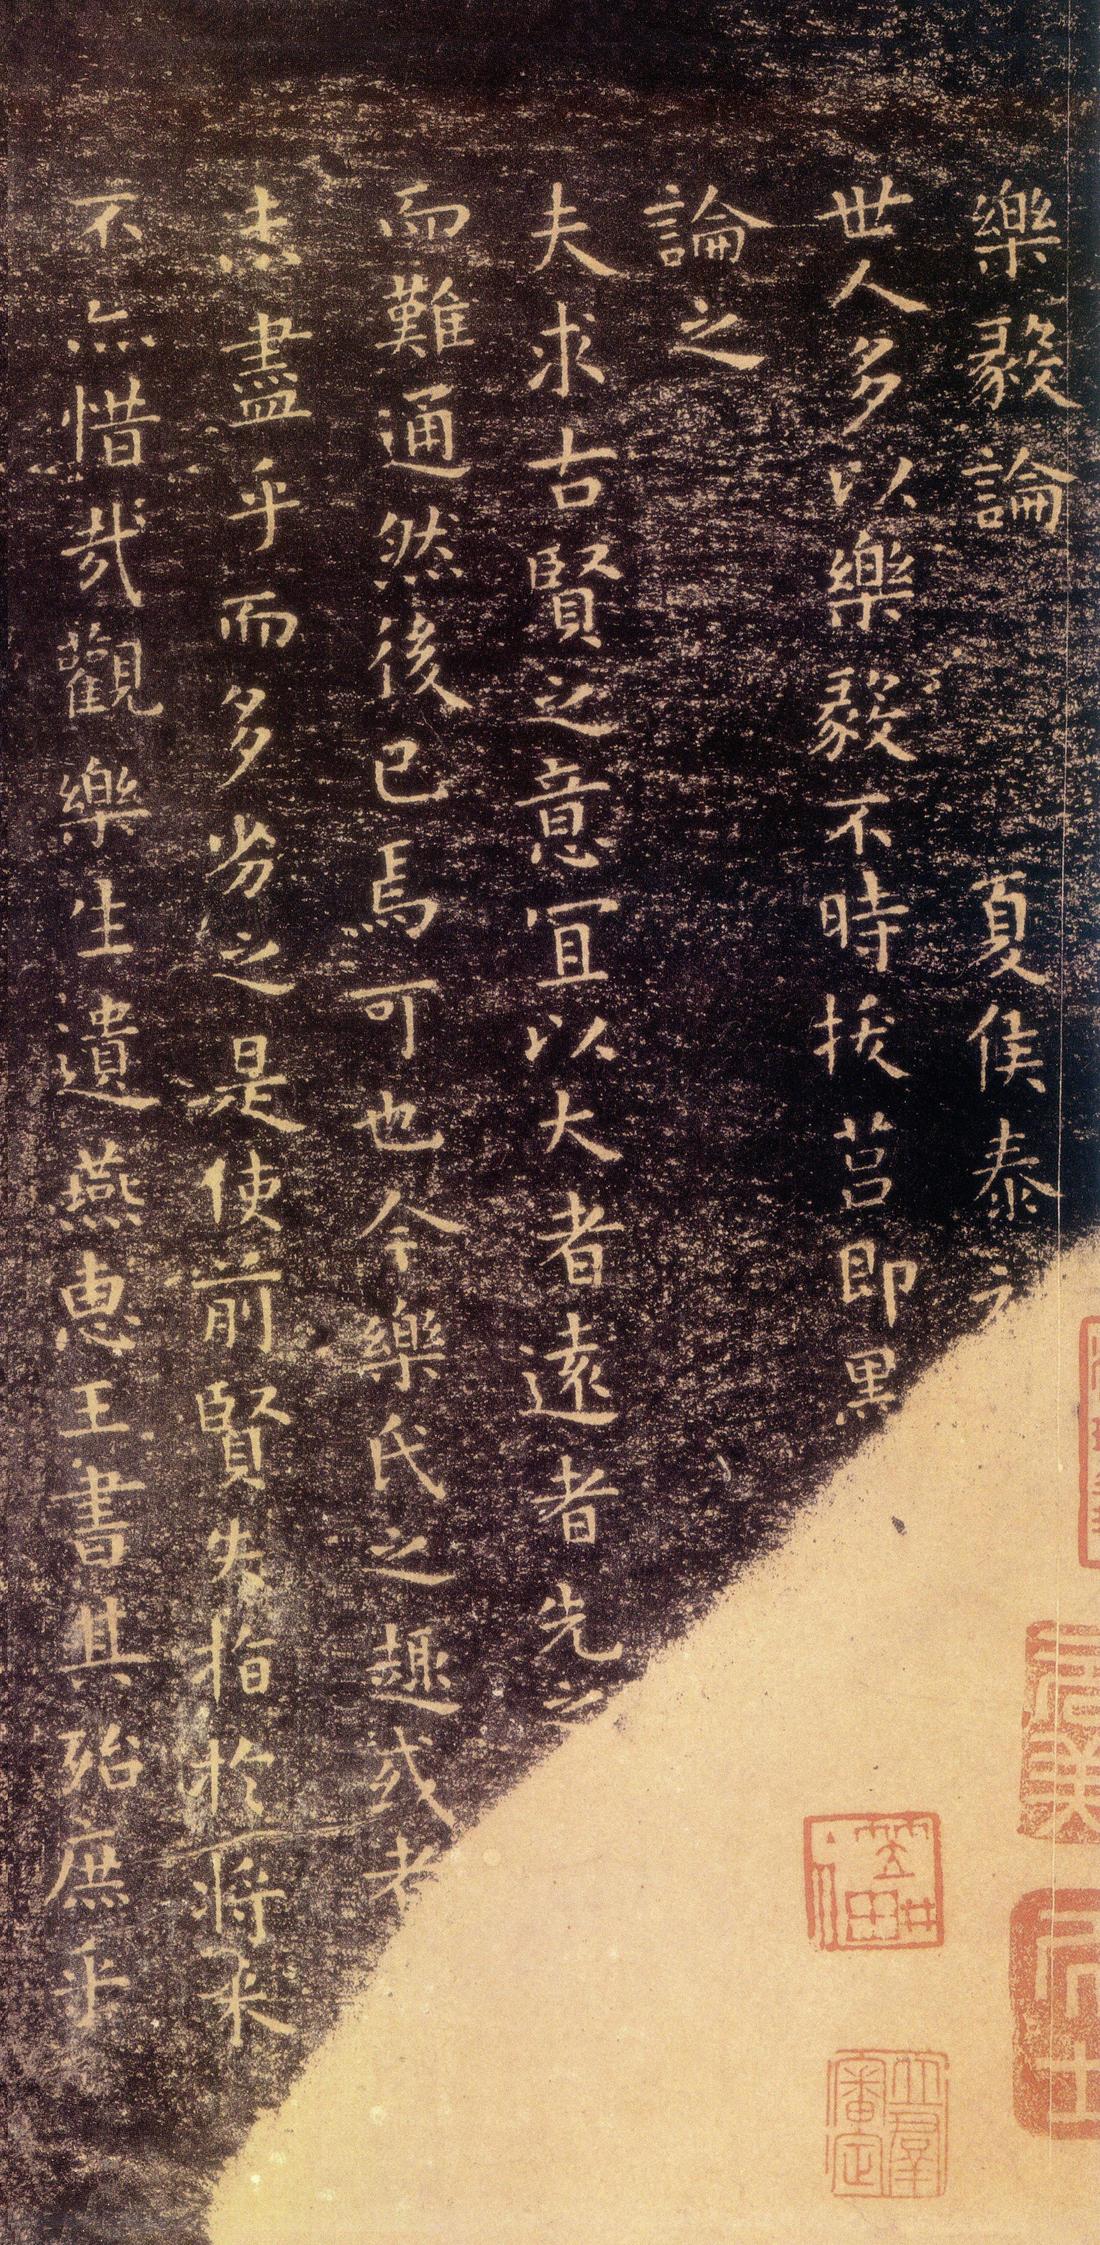 樂毅論 夏侯泰
世人多以樂毅不時拔莒即黑
論之
夫求古賢之意宜以大者遠者先之
而難通然後已焉可也今樂氏之趣或者
未盡乎而多劣之是使前賢失指於將來
不亦惜哉觀樂生遺燕惠王書其殆庶乎